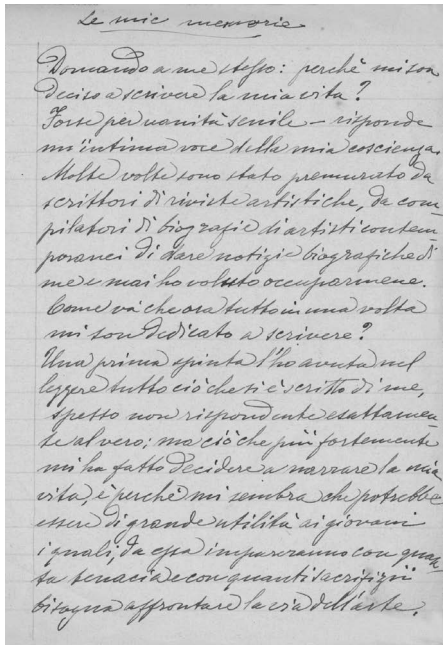 Le mie memorie
Domando a me stesso: perchè mi son
deciso a scrivere la mia vita?
Forse per vanità senile – risponde
un'intima voce della mia coscienza.
Molte volte sono stato premurato da
scrittori di riviste artistiche, da com-
pilatori di biografie di artisti contem-
poranei di dare notizie biografiche di
me e mai ho voluto occuparmene.
Come và che ora tutto in una volta
mi son dedicato a scrivere?
Una prima spinta l'ho avuta nel
leggere tutto ciò che si è scritto di me,
spesso non rispondente esattamen-
te al vero; ma ciò che più fortemente
mi ha fatto decidere a narrare la mia
vita, è perchè mi sembra che potrebbe
essere di grande utilità ai giovani
i quali, da essa impareranno con quan-
ta tenacia e con quanti sacrifizii
bisogna affrontare la via dell'arte.